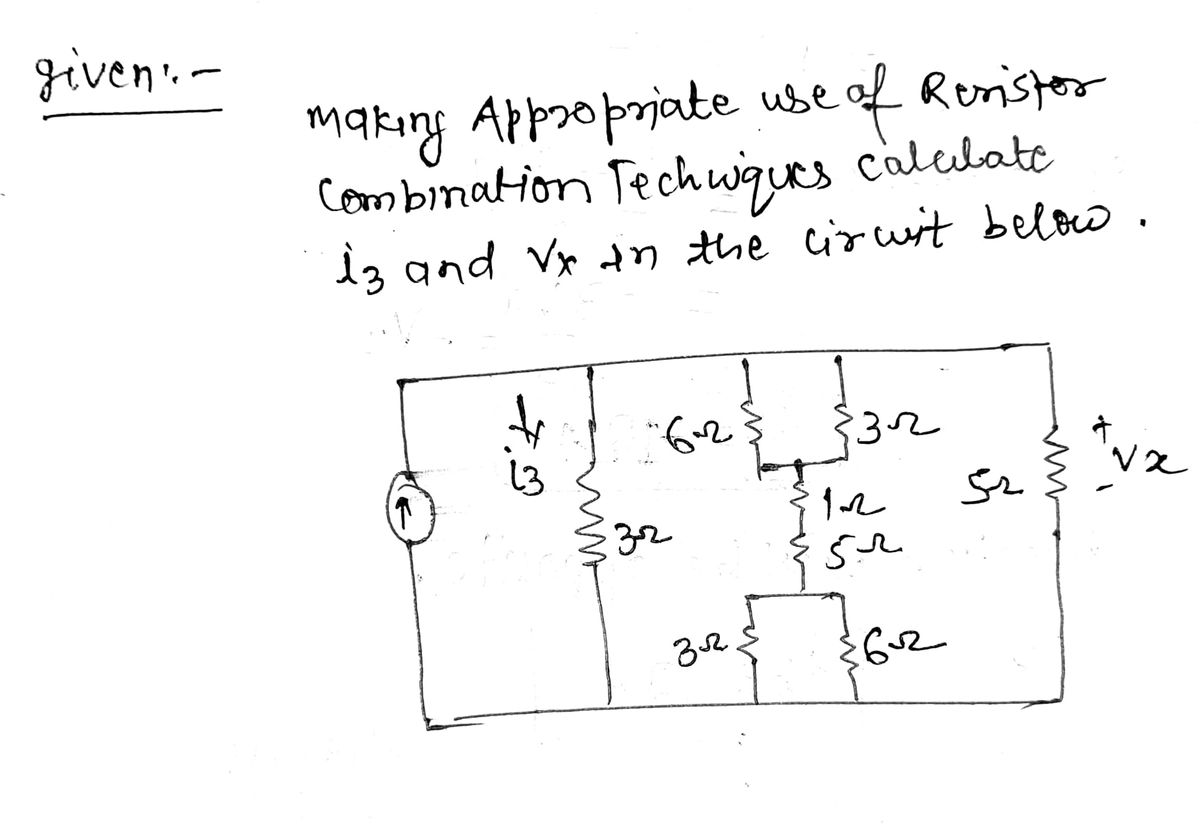 given:-
making Appropriate use of Resistor
Combination Techniques calculate
i3 and Vx in the circuit below.
6Ω 3Ω + Vx
i3
5Ω -
1Ω
3Ω 5Ω
3Ω 6Ω